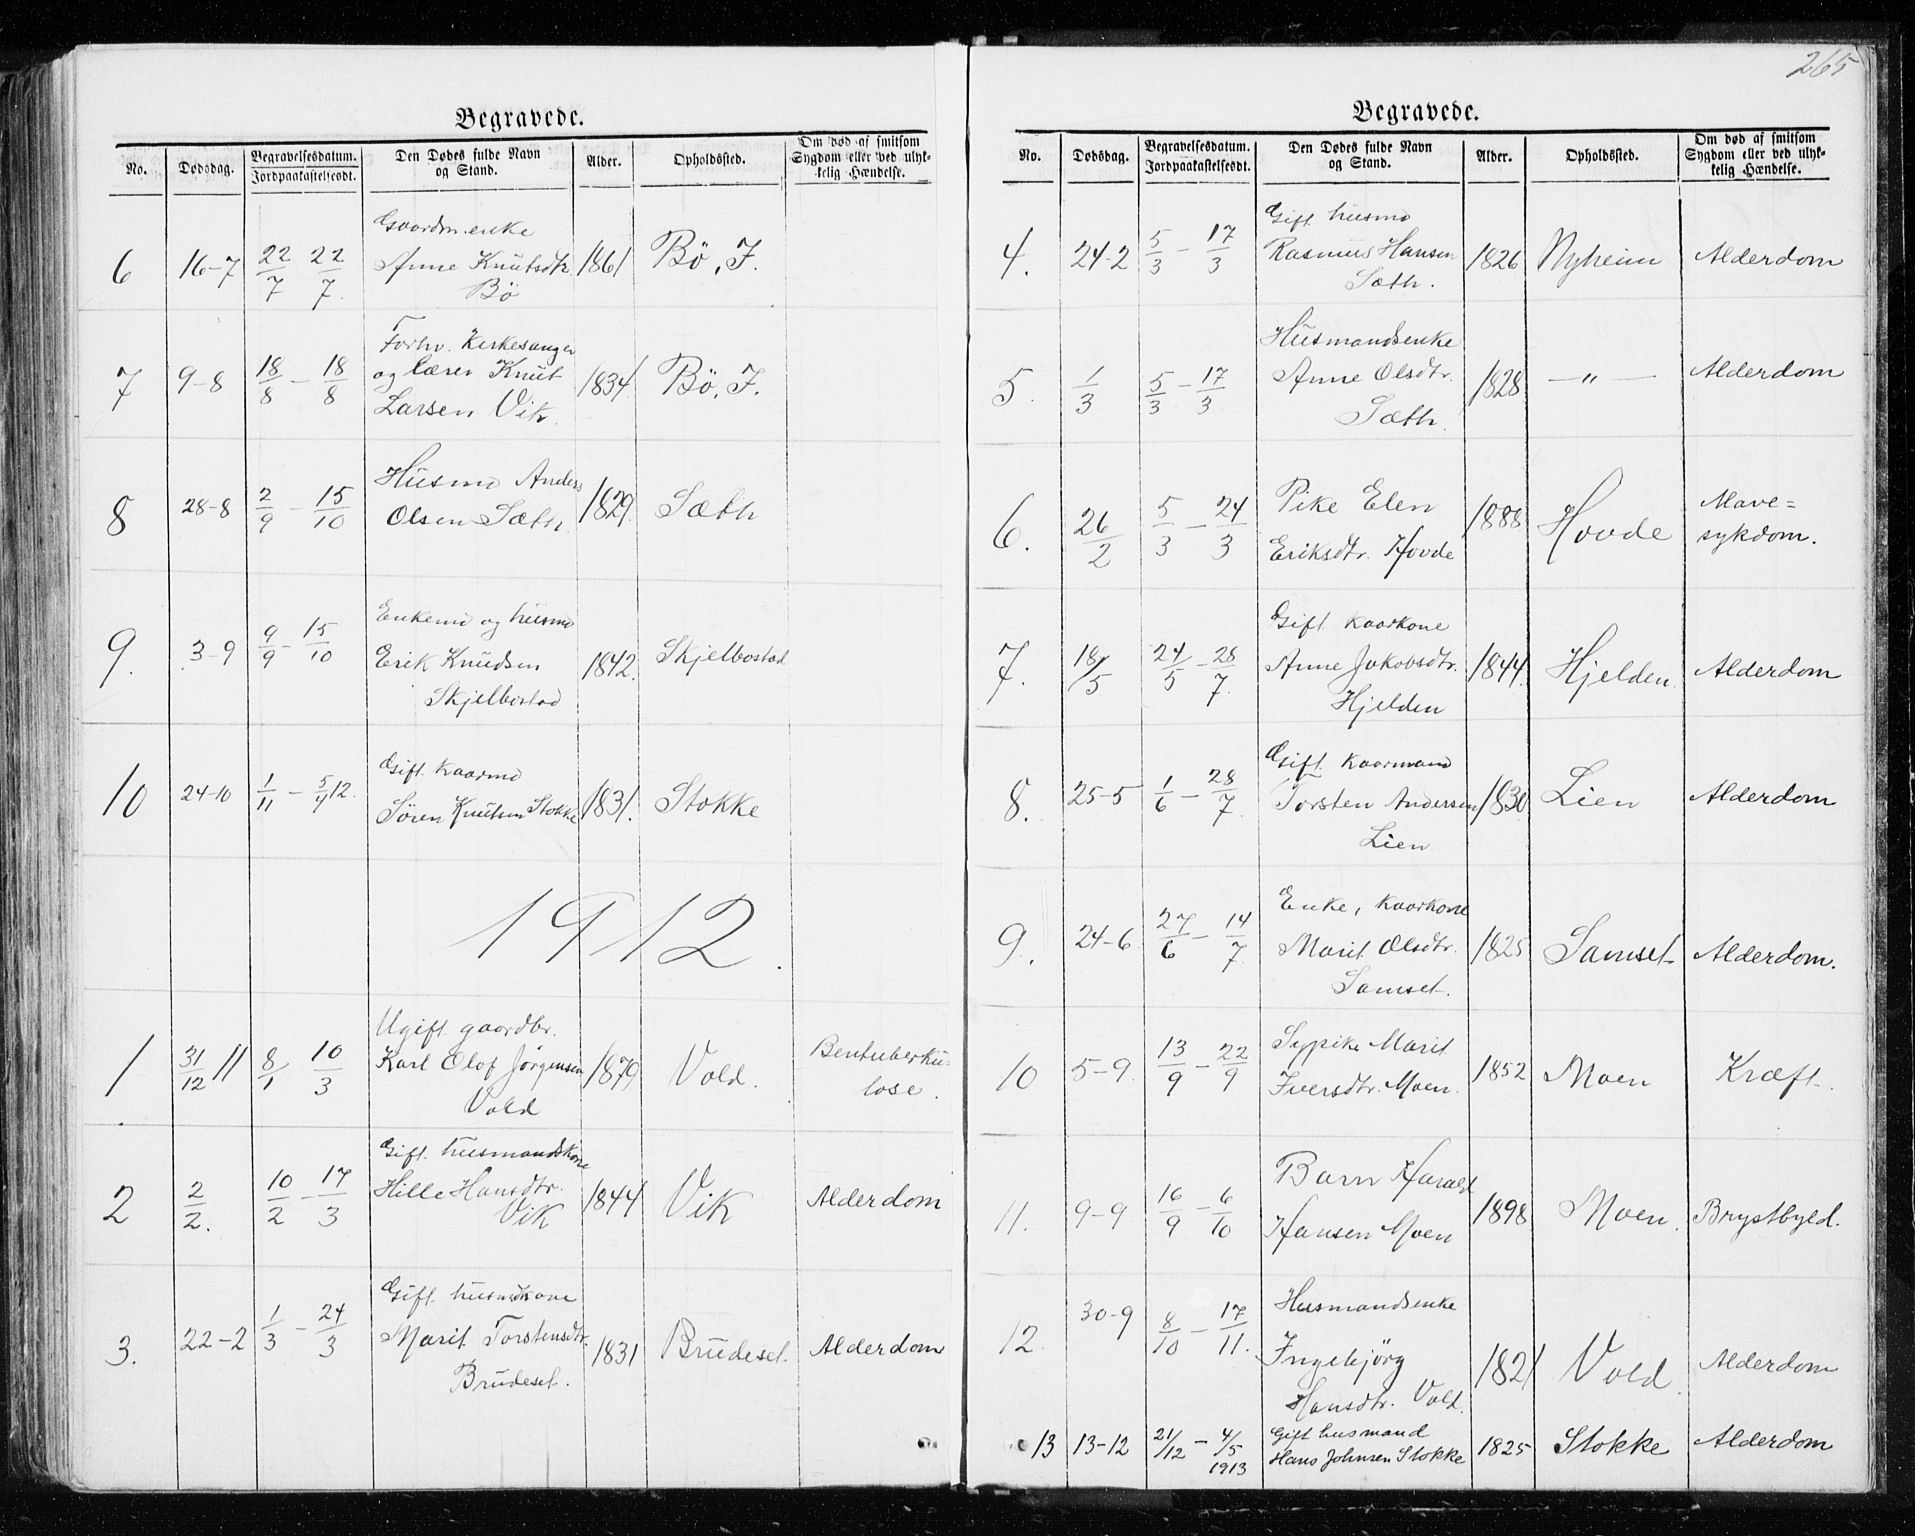 265
Begravede.
No. Dødsdag. Begravelsesdatum. Jordpaakastelsesdt. Den Dødes fulde Navn og Stand. Alder. Opholdssted. Om død af smitsom Sygdom eller ved ulykkelig Hændelse.
6 16-7 22/7 22/7. Gaardm.enke Anne Knutsdtr. Bö 1861 Bö, I.
7 9-8 18/8 - 18/8 Forhv. Kirkesanger og lærer Knut Larsen Vik. 1834. Bö, I.
8 28-8 2/9 - 15/10 Husmd Anders Olsen Sæth. 1829. Sæth
9. 3-9 9/9 - 15/10 Enkemd og husmd Erik Knudsen Skjelbostad 1842. Skjelbostad
10 24-10 1/11 - 5/4 12. Gift. kaarmd Sören Knutsen Stokke 1831. Stokke
1912.
1 31/12 11 8/1 10/3 Ugift gaardbr. Karl Olof Jörgensen Vold 1879 Vold. Bentuberkulose.
2 2/2. 10/2 - 17/3 Gift. husmandskone Hille Hansdtr. Vik 1844 Vik Alderdom
3. 22-2 1/3 - 24/3 Gift. husmdskone Marit Torstensdtr. Brudeset. 1831 Brudeset. Alderdom
Begravede.
No. Dødsdag. Begravelsesdatum. Jordpaakastelsesdt. Den Dødes fulde Navn og Stand. Alder. Opholdssted. Om død af smitsom Sygdom eller ved ulykkelig Hændelse.
4. 24-2 5/3 - 17/3 Gift husmd Rasmus Hansen Sæth. 1826 Nyheim Alderdom
5. 1/3 5/3 - 17/3 Husmandsenke Anne Olsdtr. Sæth. 1828 — „ — Alderdom
6. 26/2 5/3 - 24/3 Pike Elen Eriksdtr. Hovde 1888 Hovde Mave=sykdom.
7. 18/5 24/5 - 28/7. Gift kaarkone Anne Jakobsdtr. Hjelden 1844. Hjelden. Alderdom
8. 25-5 1/6 - 28/7. Gift. kaarmand Torsten Andersen Lien 1830 Lien Alderdom
9. 24-6 27/6 - 14/7. Enke, kaarkone Marit Olsdtr. Samset. 1825 Samset Alderdom.
10 5-9. 13/9 - 22/9 Sypike Marit Iversdtr. Moen. 1852 Moen Kræft.
11. 9-9 16/9 - 6/10 Barn Harald Hansen Moen 1898 Moen. Brystbyld.
12. 30-9 8/10 - 17/11. Husmandsenke Ingebjörg Hansdtr. Vold. 1821 Vold. Alderdom
13 13-12 21/12 - 4/5 1913 Gift husmand Hans Johnsen Stokke 1825 Stokke Alderdom